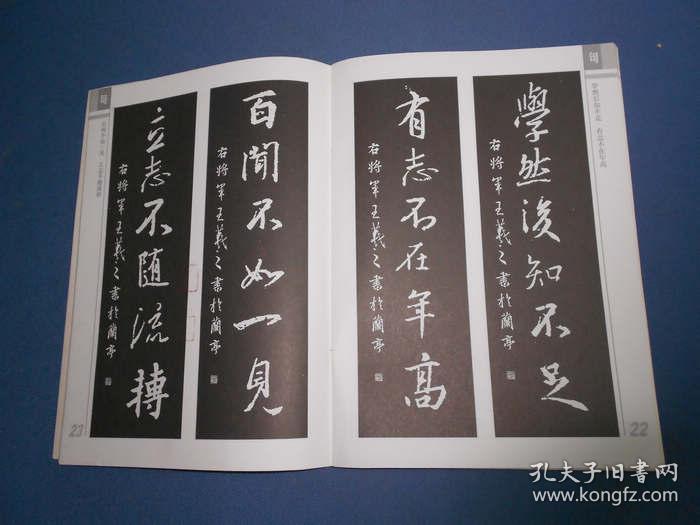 句
學然後知不足 有志不在年高
學然後知不足
右將軍王羲之書於蘭亭
有志不在年高
右將軍王羲之書於蘭亭
22
句
百聞不如一見
右將軍王羲之書於蘭亭
立志不随流轉
右將軍王羲之書於蘭亭
23
孔夫子旧书网
www.kongfz.com